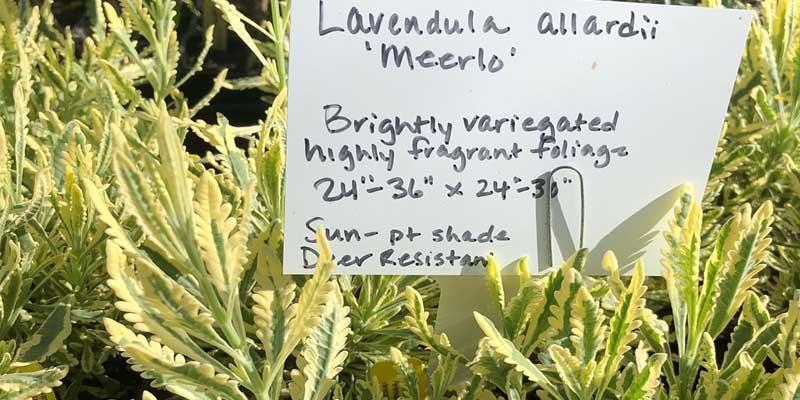 Lavendula allardii
'Meerlo'
Brightly variegated
highly fragrant foliage
24"-36" x 24"-30"
Sun- pt shade
Deer Resistant